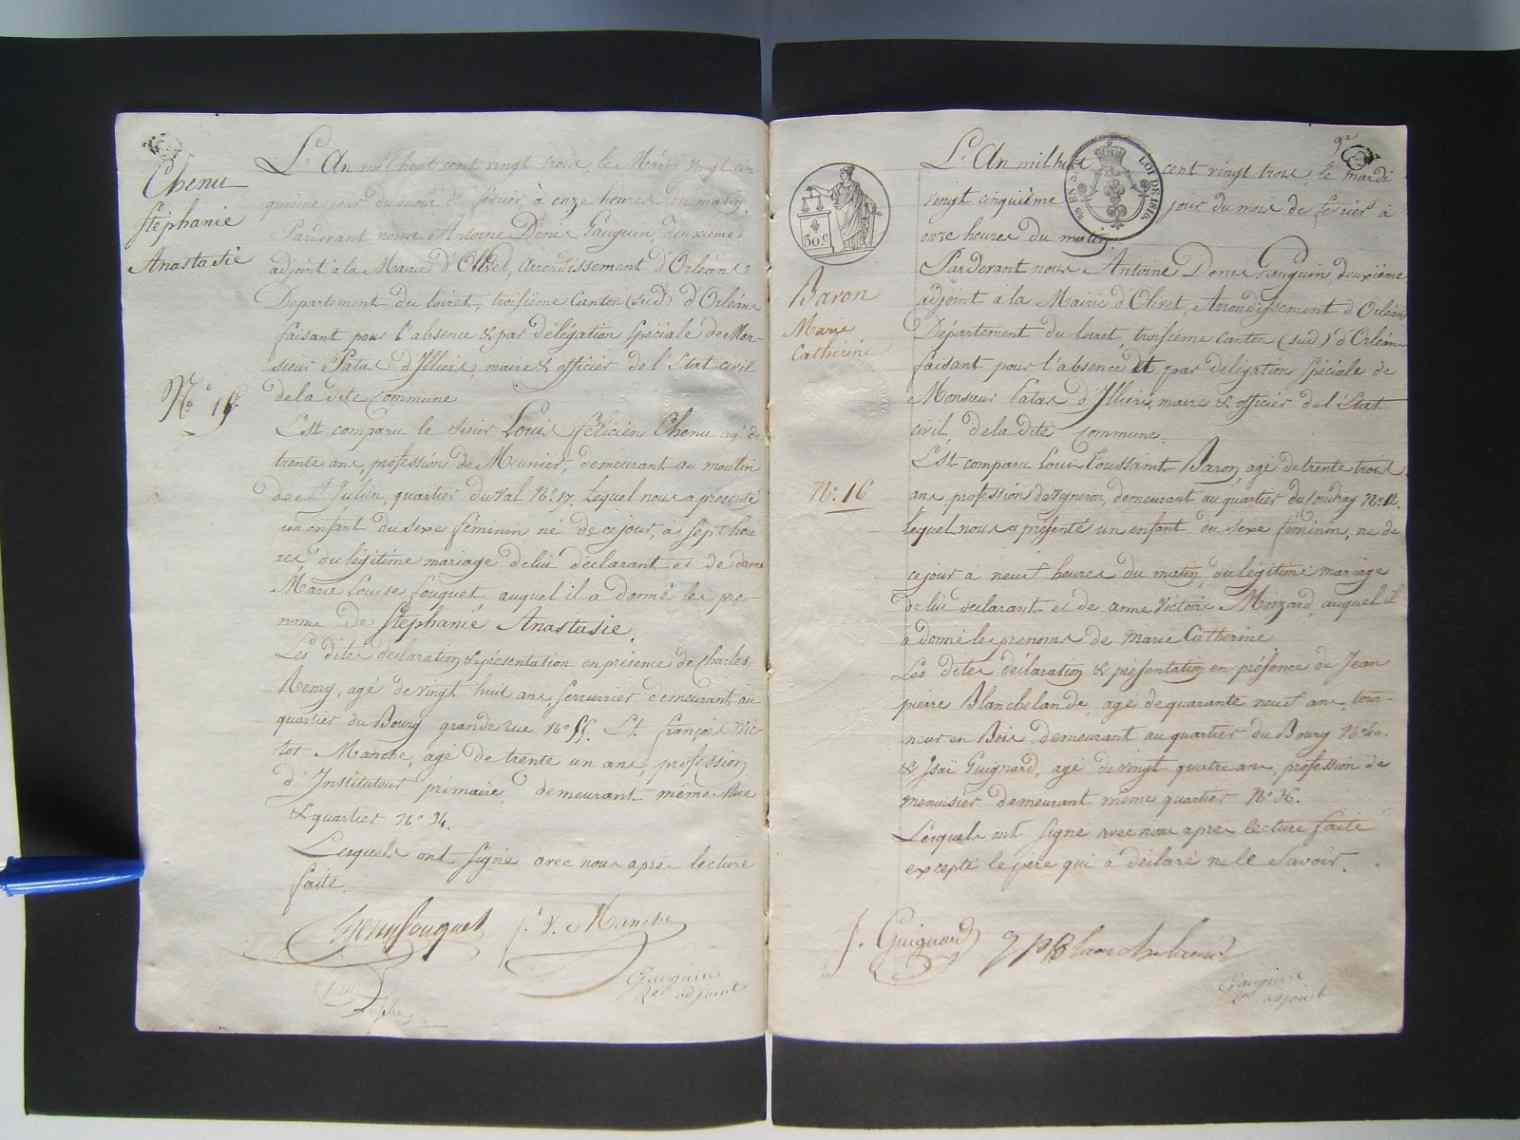 Chenu
Stéphanie
Anastasie
N.° 15.
L'An mil huit cent vingt trois, le Mardi vingt cin
quième jour du mois de février, à onze heures du matin,
Pardevant nous Antoine Denis Gauguin, deuxième
adjoint à la Mairie d'Olivet, Arrondissement d'Orléans,
Département du Loiret, troisième Canton (Sud) d'Orléans
faisant pour l'absence & par délégation spéciale de Mon-
sieur Patas d'Illiers, maire & officier de l'Etat civil
de la dite Commune
Est comparu le sieur Louis Félicien Chenu agé de
trente ans, profession de Meunier, demeurant au moulin
de St. Julien, quartier du Val N.° 17, Lequel nous a présenté
un enfant du sexe féminin né de ce jour, à sept heu
res du légitime mariage de lui déclarant et de dame
Marie Louise fouquet auquel il a donné les pré-
noms de Stéphanie Anastasie.
Les dites déclaration & présentation en présence de Charles
Remy, agé de vingt huit ans, serrurier demeurant au
quartier du Bourg grande rue N.° 55. Et françois Vic
tor Manche, agé de trente un ans, profession
d'Instituteur primaire, demeurant même Rue
& quartier N.° 34.
Lesquels ont signé avec nous après lecture
faite.
Remy fouquet f. V. Manche
Gauguin
adjoint
LOI DE 1816
50 c
Baron
Marie
Catherine
N.° 16
L'An mil huit cent vingt trois, le mardi
vingt cinquième jour du mois de février à
onze heures du matin,
Pardevant nous Antoine Denis Gauguin, deuxième
adjoint à la Mairie d'Olivet, Arrondissement d'Orléans
Département du Loiret, troisième canton (sud) d'Orléans
faisant pour l'absence et par délégation spéciale de
Monsieur Patas d'Illiers, maire & officier de l'Etat
civil, de la dite Commune.
Est comparu Louis Toussaint Baron, agé de trente trois
ans, profession de vigneron, demeurant au quartier du Coudray N.° 12.
lequel nous a présenté un enfant du sexe féminin, né de
ce jour à neuf heures du matin, du légitime mariage
de lui déclarant et de anne Victoire Monzard, auquel il
a donné les prénoms de Marie Catherine
Les dites déclaration & présentation en présence de Jean
pierre Blanchelande, agé de quarante neuf ans, tour-
neur en Bois demeurant au quartier du Bourg
& Isaï Guignard, agé de vingt quatre ans, profession de
menuisier demeurant même quartier N.° 36.
Lesquels ont signé avec nous après lecture faite
excepté le père qui a déclaré ne le savoir.
J. Guignard J P Blanchelande
Gauguin
adjoint